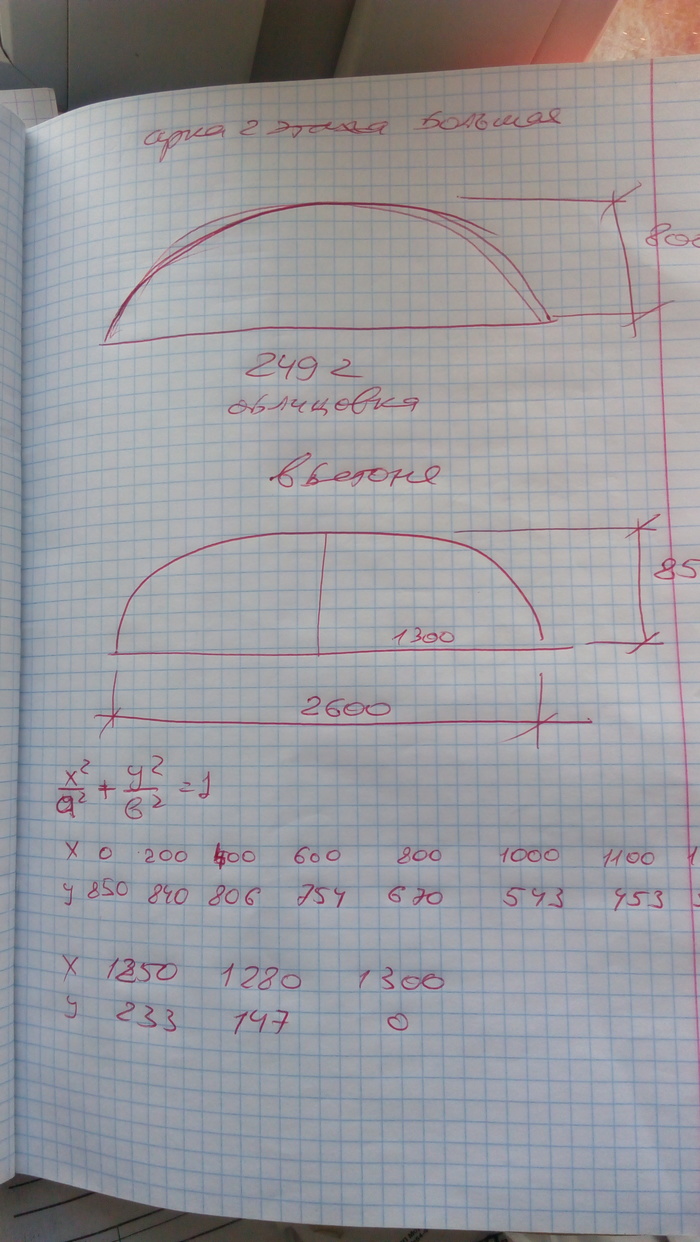 арка 2 этажа большая
800
2492
облицовка
в бетоне
85
1300
2600
x²/a² + y²/в² = 1
X 0 200 400 600 800 1000 1100 1
y 850 840 806 754 670 543 453
X 1250 1280 1300
y 233 147 0